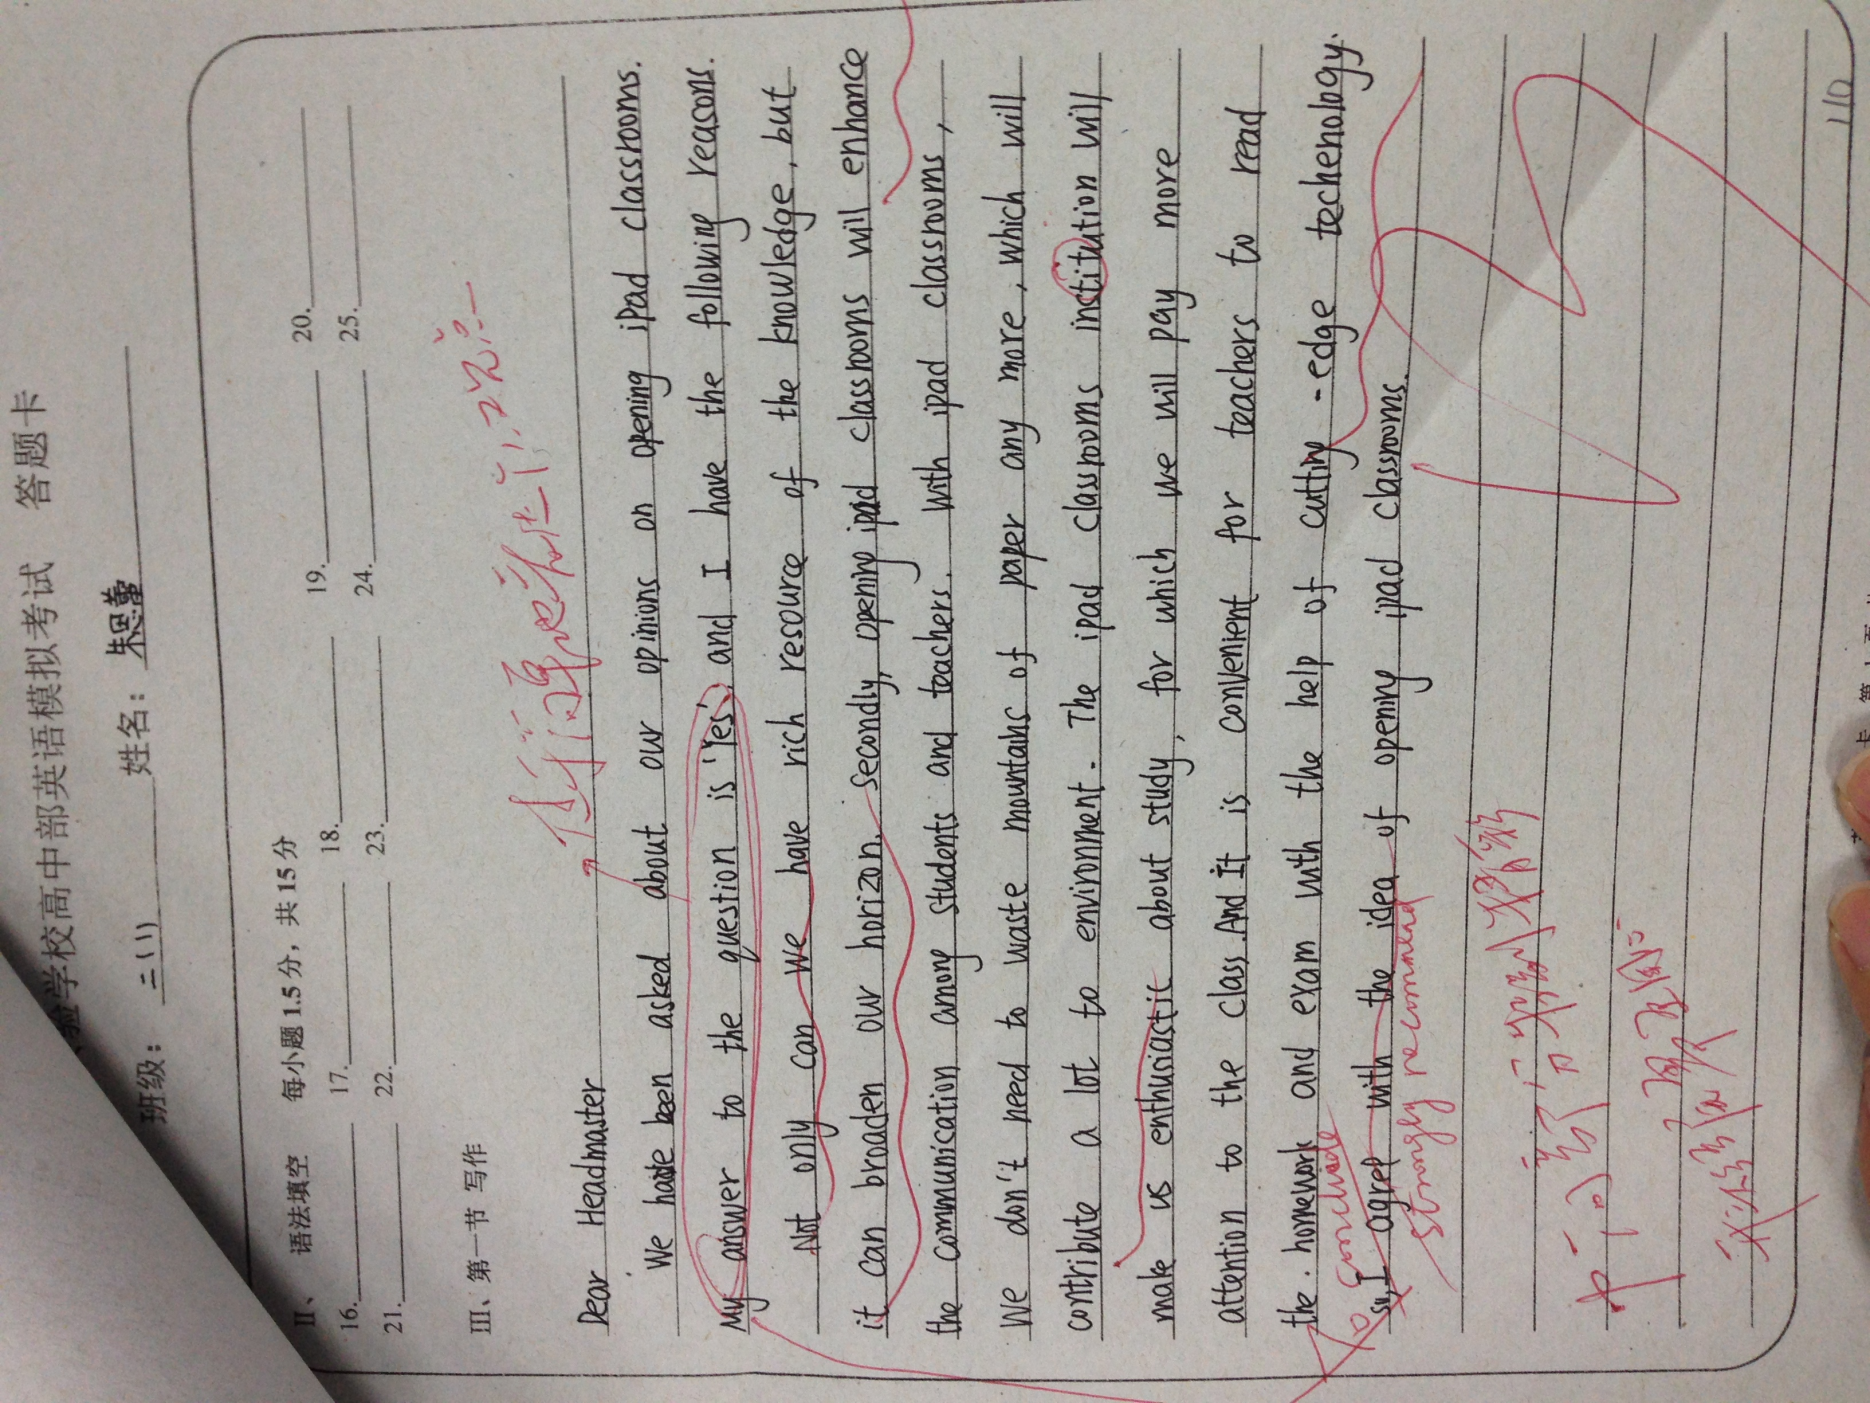 验学校高中部英语模拟考试 答题卡
班级: 二(1) 姓名: 朱思蕾
II、 语法填空 每小题 1.5 分，共 15 分
16. 17. 18. 19. 20.
21. 22. 23. 24. 25.
III、第一节 写作
Dear Headmaster
We have been asked about our opinions on opening iPad classrooms.
My answer to the question is 'Yes', and I have the following reasons.
Not only can we have rich resource of the knowledge, but
it can broaden our horizon. Secondly, opening ipad classrooms will enhance
the communication among students and teachers. With ipad classrooms,
We don't need to waste mountains of paper any more, which will
contribute a lot to environment. The ipad classrooms institution will
make us enthusiastic about study, for which we will pay more
attention to the class. And It is convenient for teachers to read
the homework and exam with the help of cutting-edge techenology.
To conclude
So, I agree with the idea of opening ipad classrooms.
strongly recommend
110